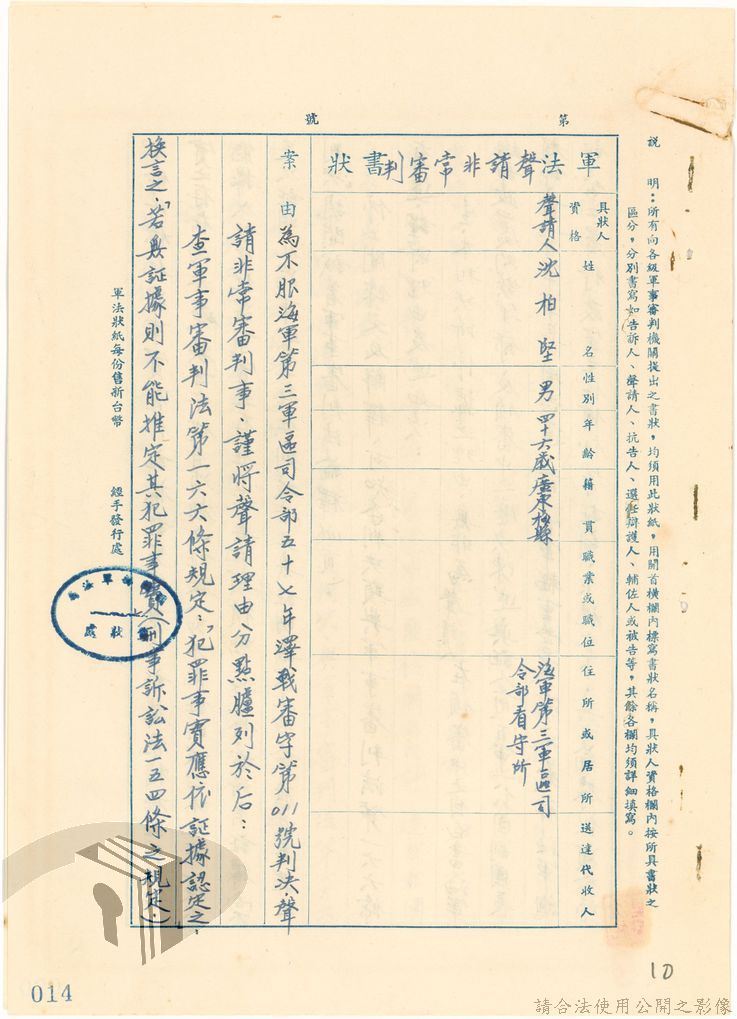 說　明：所有向各級軍事審判機關提出之書狀，均須用此狀紙，用開首橫欄內標寫書狀名稱，具狀人資格欄內按所具書狀之
區分，分別書寫如告訴人、聲請人、抗告人、選任辯護人、輔佐人或被告等，其餘各欄均須詳細填寫。
第　號
軍法聲請非常審判書狀
具狀人資格
姓名
性別
年齡
籍貫
職業或職位
住所或居所
送達代收人
聲請人
沈柏堅
男
四十六歲
廣東
縣
海軍第三軍區司
令部看守所
案由
為不服海軍第三軍區司令部五十七年澤戰審字第011號判決，聲
請非常審判事，謹將聲請理由分點臚列於后：
查軍事審判法第一六六條規定：「犯罪事實應依証據認定之，
換言之，若無証據則不能推定其犯罪事實（刑事訴訟法一五四條之規定）
軍法狀紙每份售新台幣
經手發行處
軍法
狀處
10
014
請合法使用公開之影像